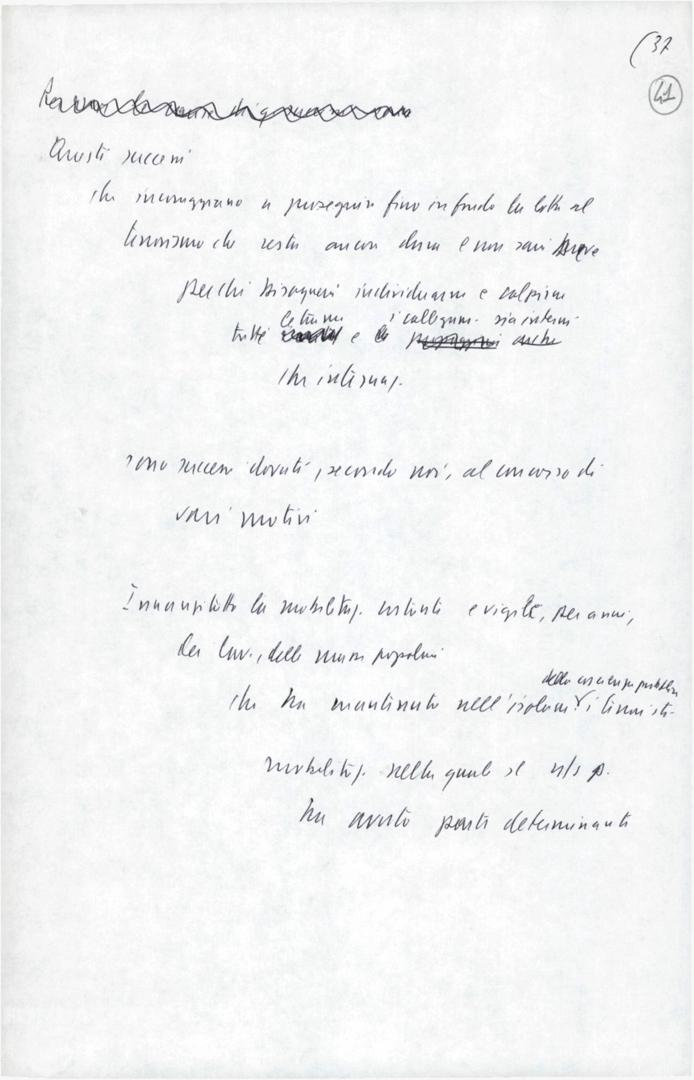 (37
41
Questi successi
che incoraggiano a proseguire fino in fondo la lotta al
terrorismo che resta ancora dura e non sarà breve
perché bisognerà individuare e colpire
le trame i collegam. sia interni
tutte e
che internaz.
sono successi dovuti, secondo noi, al concorso di
vari motivi
Innanzitutto la mobilitaz. costante e vigile, per anni,
dei lav., delle masse popolari
della coscienza
che ha mantenuto nell'isolam. i terroristi
mobilitaz. nella quale il n/s p.
ha avuto parte determinante